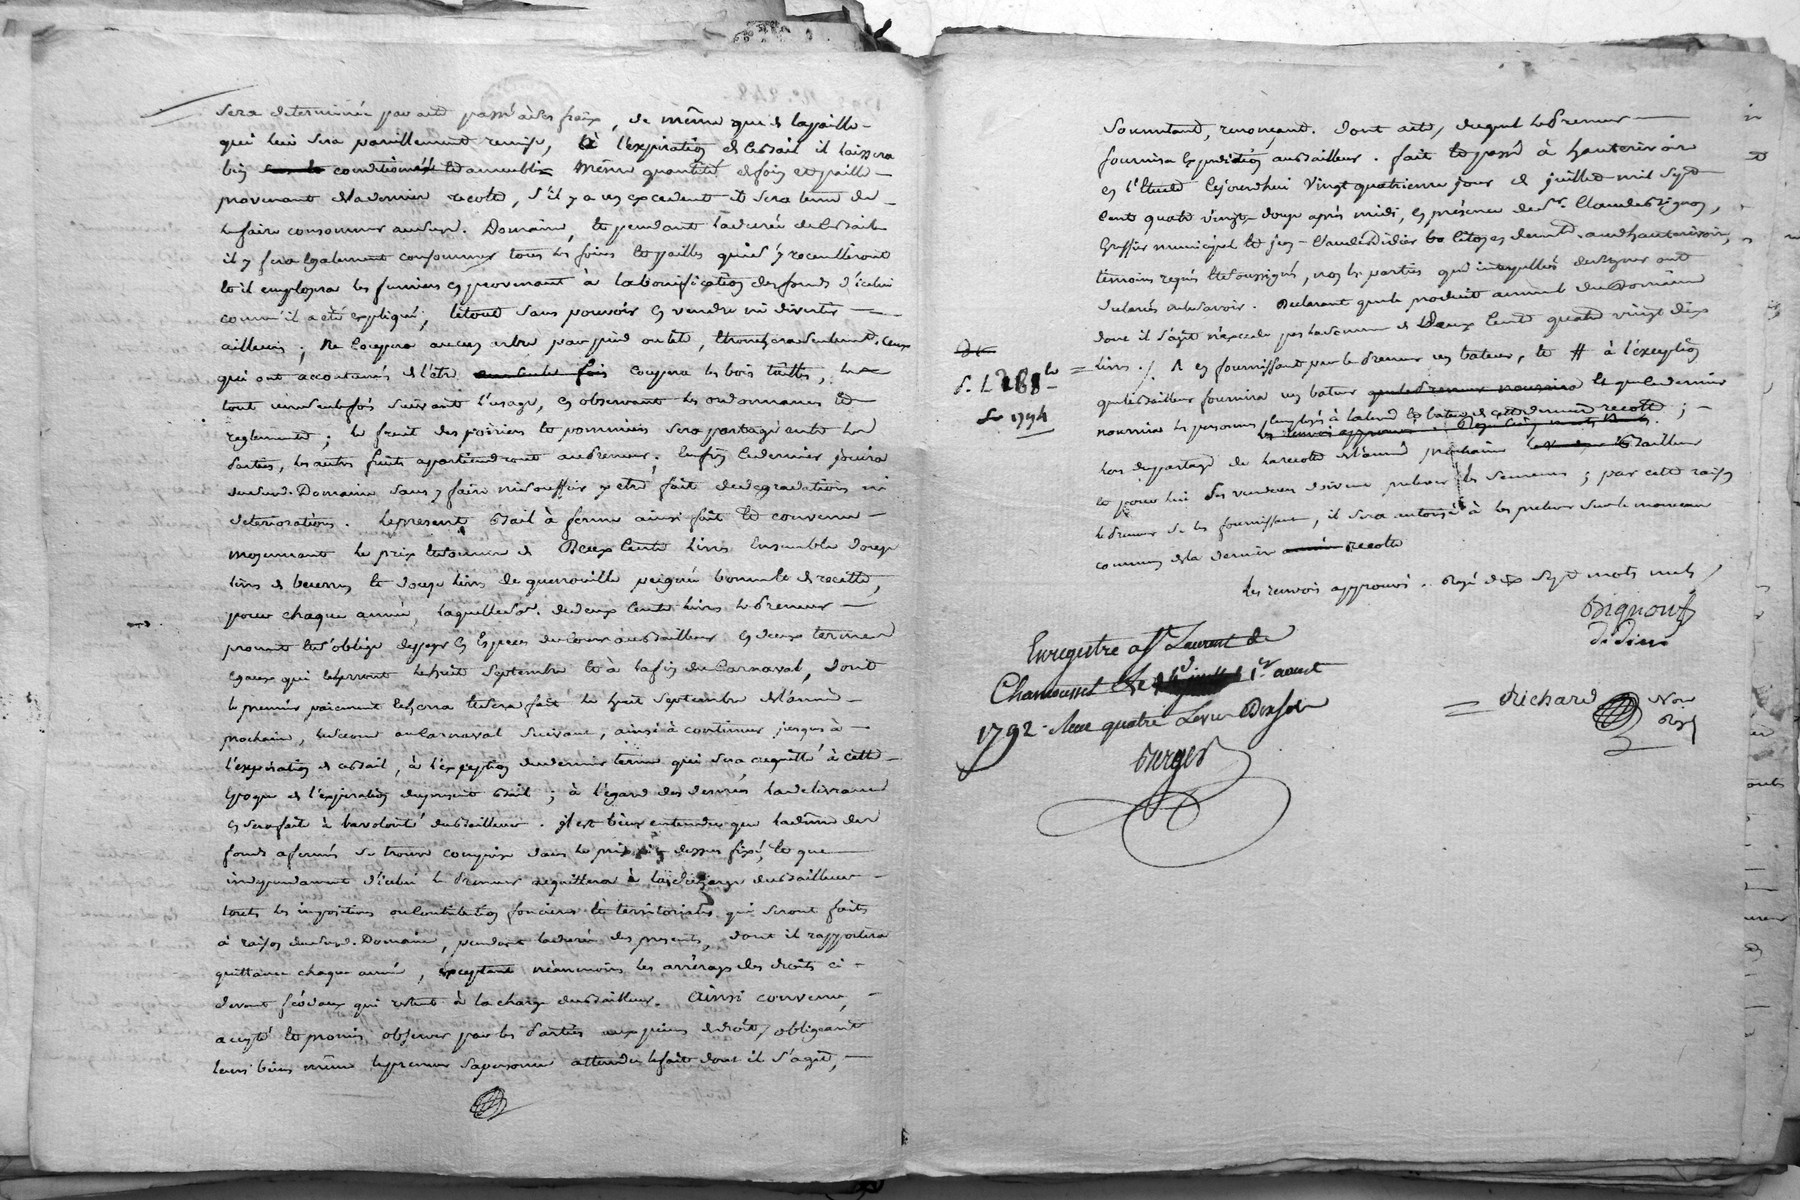 sera determinée par acte passé à ses fraix, de même que la paille
qui lui sera pareillement remise, à l'expiration de ce bail il laissera
bien conditionnés même quantité de foin et paille
provenant de la derniere recolte, s'il y a un excedent il sera tenu de
le faire consommer audit Domaine, et pendant la durée de ce bail
il y fera egalement consommer tous les foins et pailles qui s'y recueilleront
et il employera les fumiers en provenant à la bonification des fonds d'icelui
comme il a été expliqué, le tout sans pouvoir en vendre ni divertir
ailleurs; Ne coupera aucun arbre par pied ou tête, ebranchera seulement ceux
qui ont accoutumés de l'être coupera les bois taillis, le
tout une seule fois suivant l'usage, en observant les ordonnances et
reglements; le fruit des poiriers et pommiers sera partagé entre les
Parties, les autres fruits appartiendront au Preneur; Enfin ce dernier jouira
dudit Domaine sans y faire ni souffrir y etre fait de degradations ni
deteriorations. Le present Bail à ferme ainsi fait et convenu
moyennant le prix et somme de Deux Cents livres Ensemble douze
livres de beurre et douze livres de quenouille peignée bonne et de recette,
pour chaque année, laquelle somme de deux Cents livres le Preneur
promet et s'oblige de payer en Especes du Cours au Bailleur en deux termes
Egaux qui echerront le huit Septembre et à la fin du Carnaval, dont
le premier paiement echerra et sera fait le huit Septembre de l'année
prochaine, le second au Carnaval suivant, ainsi à continuer jusques à
l'expiration de ce bail, à l'exception du dernier terme qui sera acquitté à cette
Epoque de l'expiration du present Bail; à l'égard des denrées la delivrance
en sera faite à la volonté du Bailleur. Il est bien entendu que la dîme des
fonds affermés se trouve comprise dans le prix ci-dessus fixé, et que
independament d'icelui le Preneur acquittera à la décharge du Bailleur
toutes les impositions ou Contribution foncieres et territoriales qui seront faites
à raison dudit Domaine, pendant la durée des presentes, dont il rapportera
quittance chaque année, exceptant néanmoins les arrérages des droits ci-
devant féodaux qui restent à la charge du Bailleur. Ainsi convenu,
accepté et promis observer par les Parties aux peines de droit, obligeant
leurs biens même le preneur sa personne attendu le fait dont il s'agit,
Soumettant, renonçant. Dont acte, duquel le Preneur
fournira Expedition au Bailleur. fait et passé à hauterivoire
en l'Etude Cejourd'hui Vingt quatrieme jour de juillet mil Sept
Cent quatre Vingt-douze après midi, en présence de Sr. Claude Bignon,
Greffier municipal et Jean-Claude Didier Citoyen demeurant audit hauterivoire,
temoins requis et soussignés, non les parties qui interpellées de signer ont
declarés ne le savoir. Déclarant que le produit annuel du Domaine
dont il s'agit n'excede pas la somme de Deux Cents quatre vingt dix
livres. /. A en fournissant par le Preneur un bateur, et # à l'exception
que le Bailleur fournira un bateur et que ce dernier
nourrira les personnes employées à battre cette derniere recolte;
lors du partage de la recolte de l'année prochaine le Bailleur
le Preneur de les fournissant, il sera autorisé à les prelever sur le monceau
commun de la derniere recolte
Les renvois approuvés. Rayé dix Sept mots nuls
Bignon Gf
didier
S. L 288 lt
Enregistré a St Laurent de
Chamousset Le 1er aoust
1792. Recu quatre Livres Dix sols
Richard Nore
Royl